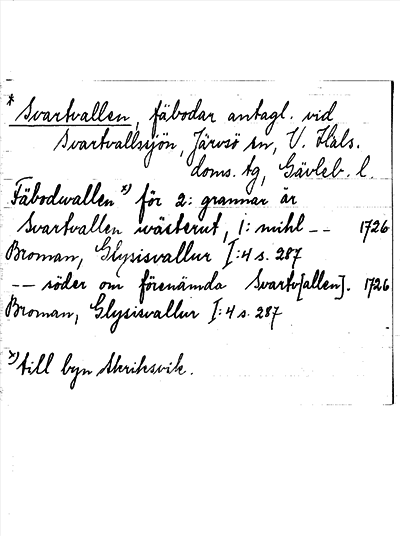 * Svartvallen, fäbodar antagl. vid
Svartvallsjön, Järvsö sn, V. Häls.
doms. tg, Gävleb. l.
Fäbodwallen x) för 2: grannar är
Svartvallen wästerut, 1: mihl -- 1726
Broman, Glysisvallur I:4 s. 287
-- söder om förenämda Svartv[allen]. 1726
Broman, Glysisvallur I:4 s. 287
x) till byn Skriksvik.